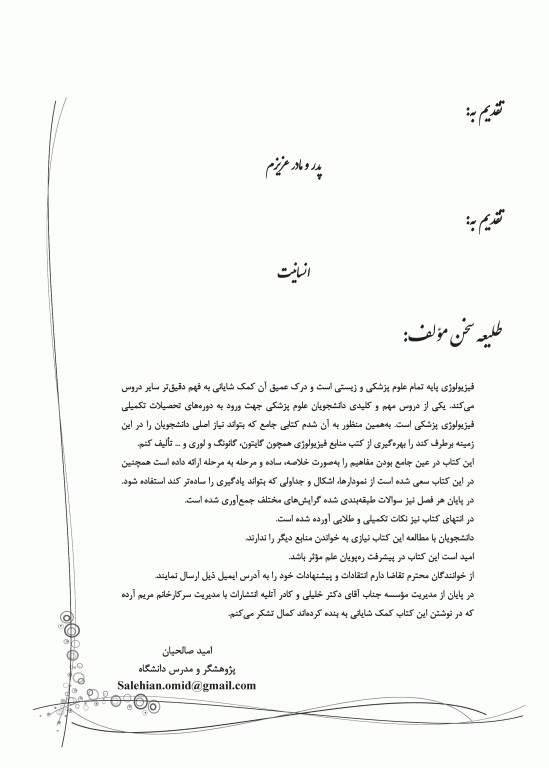 تقدیم به:
پدر و مادر عزیزم
تقدیم به:
انسانیت
طلیعه سخن مؤلف:
فیزیولوژی پایه تمام علوم پزشکی و زیستی است و درک عمیق آن کمک شایانی به فهم دقیق‌تر سایر دروس
می‌کند. یکی از دروس مهم و کلیدی دانشجویان علوم پزشکی جهت ورود به دوره‌های تحصیلات تکمیلی
فیزیولوژی پزشکی است. به‌همین منظور به آن شدم کتابی جامع که بتواند نیاز اصلی دانشجویان را در این
زمینه برطرف کند را بهره‌گیری از کتب منابع فیزیولوژی همچون گایتون، گانونگ و لوری و ... تألیف کنم.
این کتاب در عین جامع بودن مفاهیم را به‌صورت خلاصه، ساده و مرحله به مرحله ارائه داده است همچنین
در این کتاب سعی شده است از نمودارها، اشکال و جداولی که بتواند یادگیری را ساده‌تر کند استفاده شود.
در پایان هر فصل نیز سوالات طبقه‌بندی شده گرایش‌های مختلف جمع‌آوری شده است.
در انتهای کتاب نیز نکات تکمیلی و طلایی آورده شده است.
دانشجویان با مطالعه این کتاب نیازی به خواندن منابع دیگر را ندارند.
امید است این کتاب در پیشرفت ره‌پویان علم مؤثر باشد.
از خوانندگان محترم تقاضا دارم انتقادات و پیشنهادات خود را به آدرس ایمیل ذیل ارسال نمایند.
در پایان از مدیریت مؤسسه جناب آقای دکتر خلیلی و کادر آتلیه انتشارات با مدیریت سرکارخانم مریم آرده
که در نوشتن این کتاب کمک شایانی به بنده کرده‌اند کمال تشکر می‌کنم.
امید صالحیان
پژوهشگر و مدرس دانشگاه
Salehian.omid@gmail.com